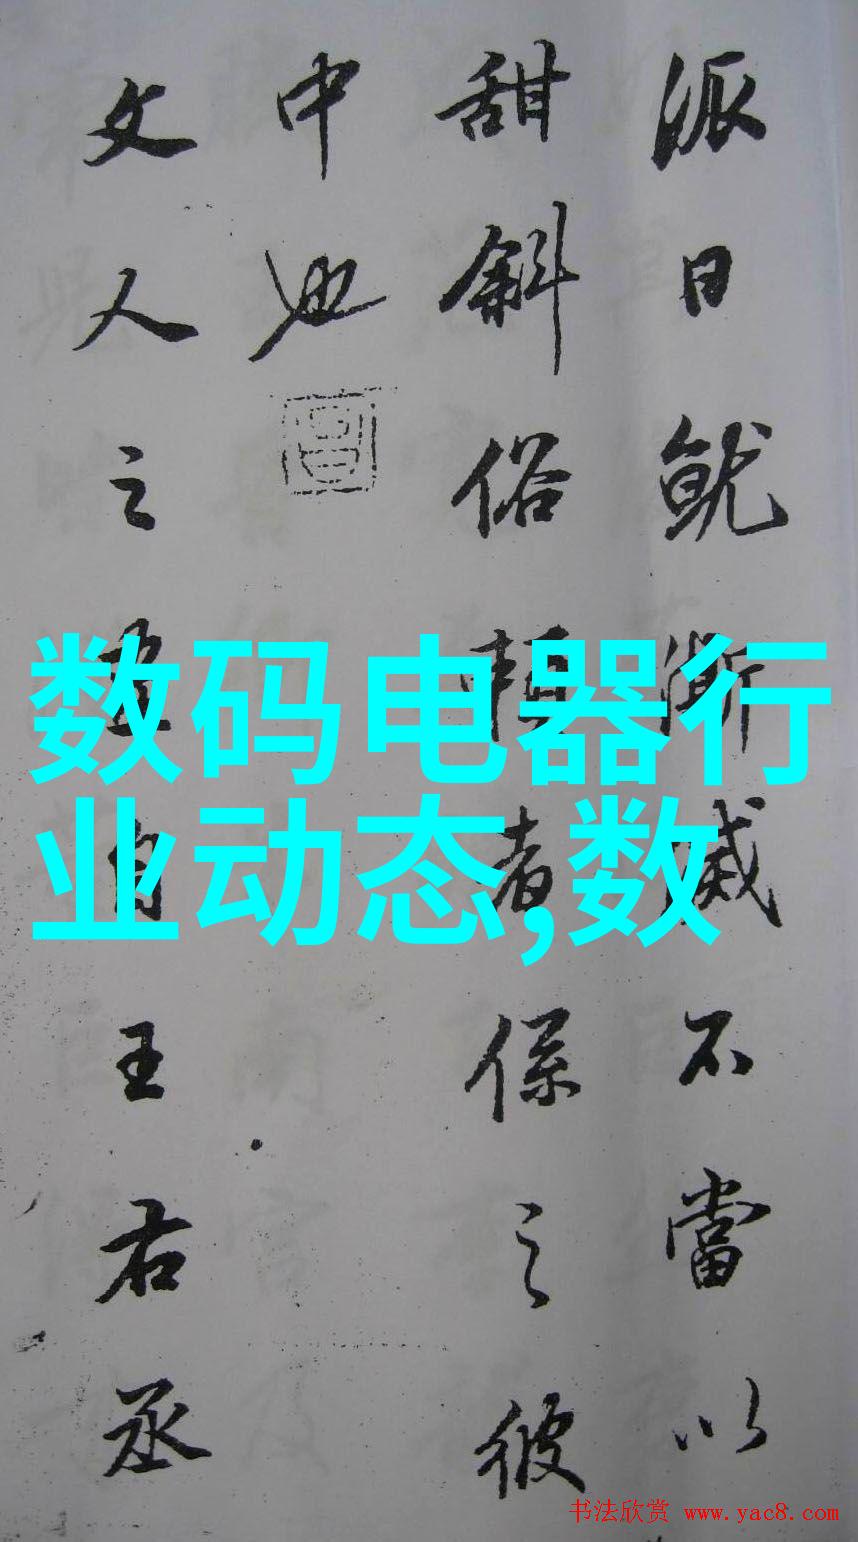 派日就澌滅不當以
甜斜俗賴者係之彼
中也
文人之畫自王右丞
数码电器行
业动态,数
书法欣赏 www.yac8.com